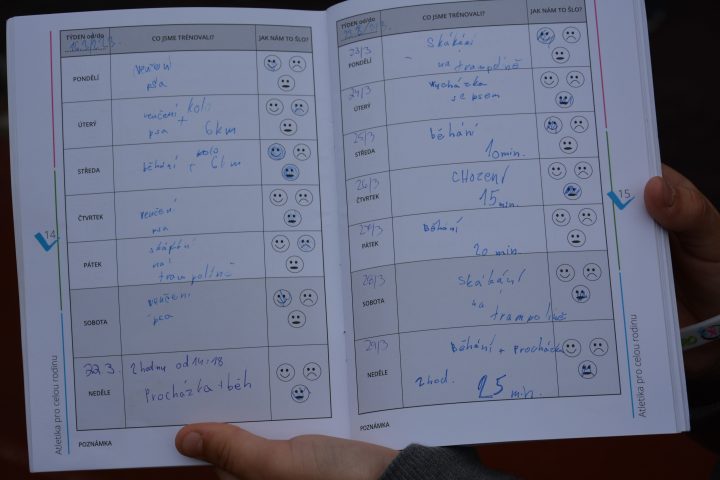 TÝDEN od/do
CO JSME TRÉNOVALI?
JAK NÁM TO ŠLO?
PONDĚLÍ
venčení
psa
ÚTERÝ
venčení kolo
psa +
6km
STŘEDA
běhání + kolo 6km
ČTVRTEK
venčení
psa
PÁTEK
skákání
na
trampolíně
SOBOTA
venčení
psa
22.3.
2 hodiny od 14-18
NEDĚLE
Procházka + běh
POZNÁMKA
14
Atletika pro celou rodinu
TÝDEN od/do
CO JSME TRÉNOVALI?
JAK NÁM TO ŠLO?
23/3
PONDĚLÍ
Skákání
na trampolíně
24/3
ÚTERÝ
Vycházka
se psem
25/3
STŘEDA
běhání
10min.
26/3
ČTVRTEK
CHození
15 min.
27/3
PÁTEK
Běhání
20 min.
28/3
SOBOTA
Skákání
na trampolíně
29/3
NEDĚLE
Běhání + Procházka
2hod. 25 min.
POZNÁMKA
15
Atletika pro celou rodinu